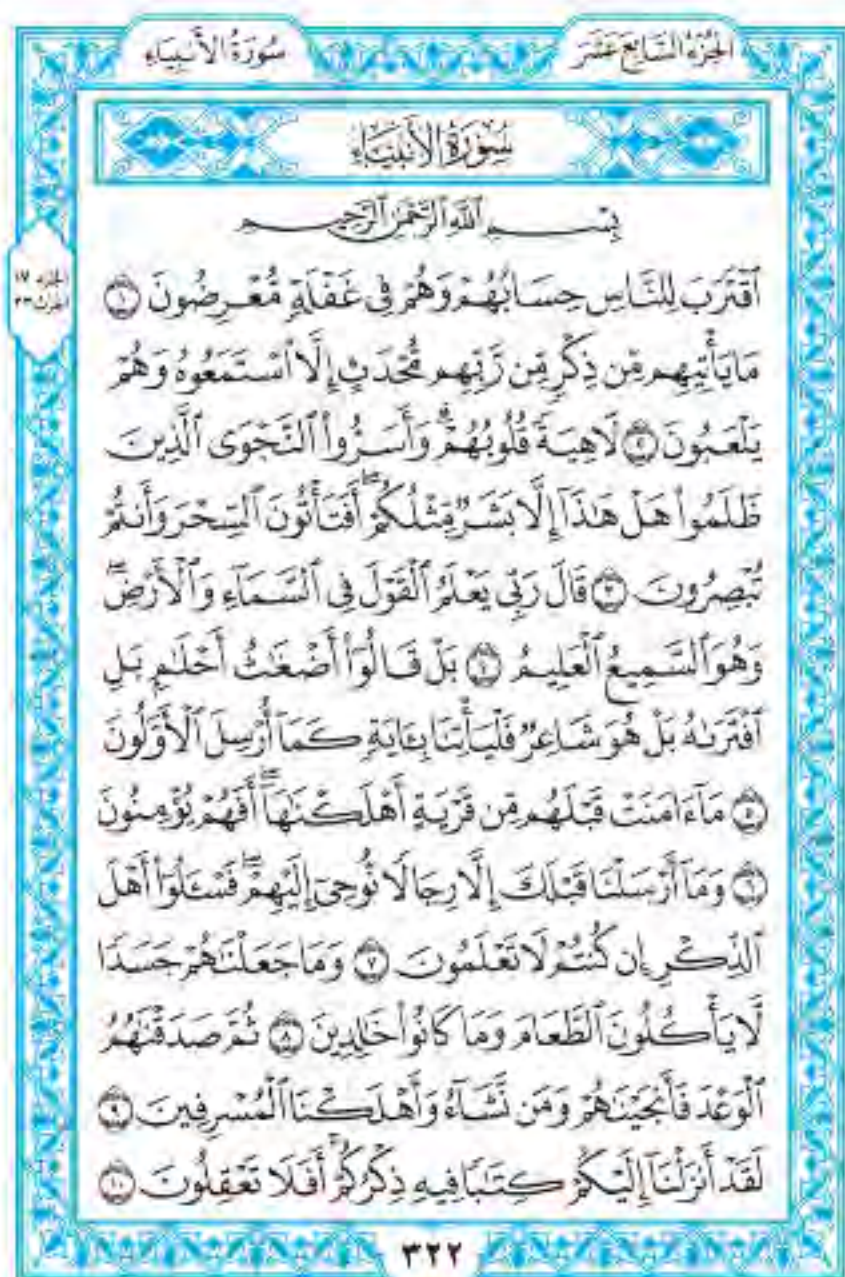 الجُزْءُ السَّابِعَ عَشَرَ
سُورَةُ الأَنبِيَاءِ
سُورَةُ الأَنبِيَاءِ
بِسْمِ ٱللَّهِ ٱلرَّحْمَٰنِ ٱلرَّحِيمِ
الجزء ١٧
الحزب ٣٣
ٱقْتَرَبَ لِلنَّاسِ حِسَابُهُمْ وَهُمْ فِى غَفْلَةٍ مُّعْرِضُونَ ١
مَا يَأْتِيهِم مِّن ذِكْرٍ مِّن رَّبِّهِم مُّحْدَثٍ إِلَّا ٱسْتَمَعُوهُ وَهُمْ
يَلْعَبُونَ ٢ لَاهِيَةً قُلُوبُهُمْ ۗ وَأَسَرُّوا۟ ٱلنَّجْوَى ٱلَّذِينَ
ظَلَمُوا۟ هَلْ هَٰذَآ إِلَّا بَشَرٌ مِّثْلُكُمْ ۖ أَفَتَأْتُونَ ٱلسِّحْرَ وَأَنتُمْ
تُبْصِرُونَ ٣ قَالَ رَبِّى يَعْلَمُ ٱلْقَوْلَ فِى ٱلسَّمَآءِ وَٱلْأَرْضِ ۖ
وَهُوَ ٱلسَّمِيعُ ٱلْعَلِيمُ ٤ بَلْ قَالُوٓا۟ أَضْغَٰثُ أَحْلَٰمٍۭ بَلِ
ٱفْتَرَىٰهُ بَلْ هُوَ شَاعِرٌ فَلْيَأْتِنَا بِـَٔايَةٍ كَمَآ أُرْسِلَ ٱلْأَوَّلُونَ
٥ مَآ ءَامَنَتْ قَبْلَهُم مِّن قَرْيَةٍ أَهْلَكْنَٰهَآ ۖ أَفَهُمْ يُؤْمِنُونَ
٦ وَمَآ أَرْسَلْنَا قَبْلَكَ إِلَّا رِجَالًا نُّوحِىٓ إِلَيْهِمْ ۖ فَسْـَٔلُوٓا۟ أَهْلَ
ٱلذِّكْرِ إِن كُنتُمْ لَا تَعْلَمُونَ ٧ وَمَا جَعَلْنَٰهُمْ جَسَدًا
لَّا يَأْكُلُونَ ٱلطَّعَامَ وَمَا كَانُوا۟ خَٰلِدِينَ ٨ ثُمَّ صَدَقْنَٰهُمُ
ٱلْوَعْدَ فَأَنجَيْنَٰهُمْ وَمَن نَّشَآءُ وَأَهْلَكْنَا ٱلْمُسْرِفِينَ ٩
لَقَدْ أَنزَلْنَآ إِلَيْكُمْ كِتَٰبًا فِيهِ ذِكْرُكُمْ ۖ أَفَلَا تَعْقِلُونَ ١٠
٣٢٢